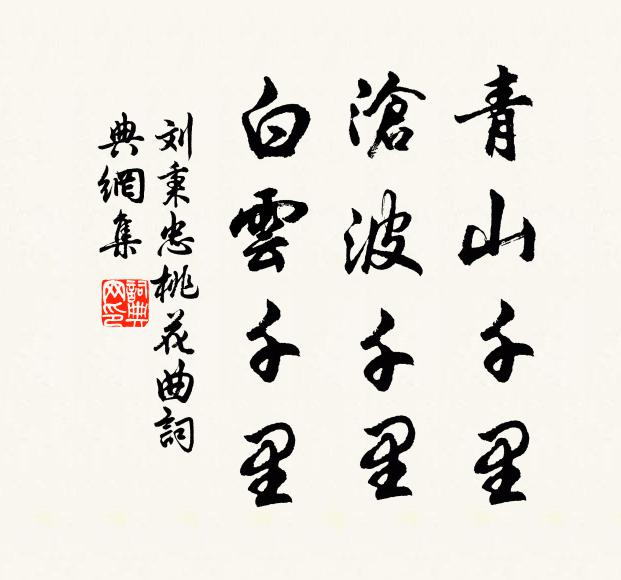 青山千里
滄波千里
白雲千里
刘秉忠桃花曲詞
典網集
詞典网印